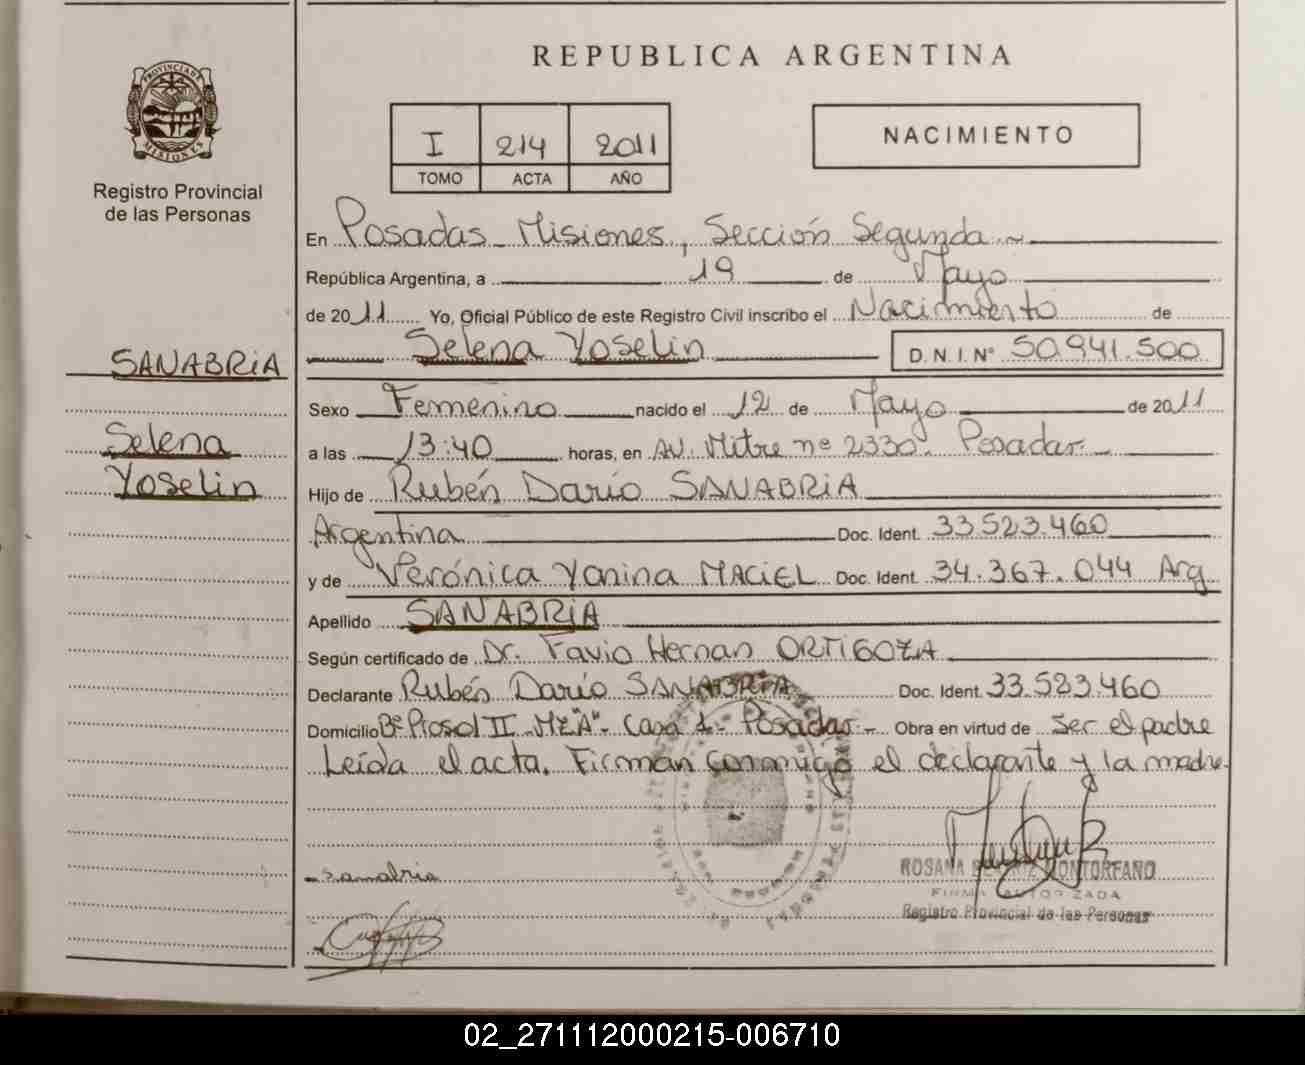 REPUBLICA ARGENTINA
PROVINCIA DE
MISIONES
Registro Provincial
de las Personas
I 214 2011
TOMO ACTA AÑO
NACIMIENTO
En Posadas Misiones, Sección Segunda
República Argentina, a 19 de Mayo
de 2011 Yo, Oficial Público de este Registro Civil inscribo el Nacimiento de
Selena Yoselin D.N.I. Nº 50.941.500
SANABRIA
Selena
Yoselin
Sexo Femenino nacido el 12 de Mayo de 2011
a las 13:40 horas, en AV. Mitre nº 2330. Posadas
Hijo de Rubén Darío SANABRIA
Argentina Doc. Ident. 33.523.460
y de Verónica Yanina MACIEL Doc. Ident. 34.367.044 Arg
Apellido SANABRIA
Según certificado de Dr. Favio Hernan ORTIGOZA
Declarante Rubén Darío SANABRIA Doc. Ident. 33.523.460
Domicilio Bº Prosol II - MZ"A" - Casa 1 - Posadas - Obra en virtud de Ser el padre
Leída el acta. Firman conmigo el declarante y la madre.
Sanabria
ROSANA BEATRIZ MONTORFANO
FIRMA AUTORIZADA
Registro Provincial de las Personas
02_271112000215-006710